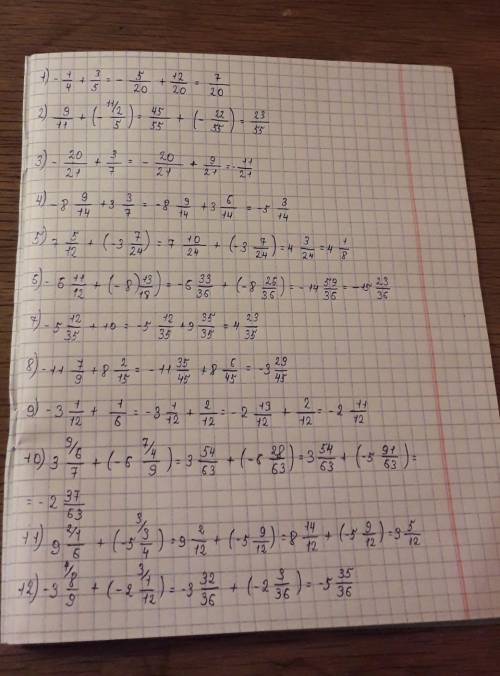 1) - 1/4 + 3/5 = - 5/20 + 12/20 = 7/20
2) 9/11 + (- 11/ 2/5) = 45/55 + (- 22/55) = 23/55
3) - 20/21 + 3/7 = - 20/21 + 9/21 = - 11/21
4) - 8 9/14 + 3 3/7 = - 8 9/14 + 3 6/14 = - 5 3/14
5) 7 5/12 + (- 3 7/24) = 7 10/24 + (- 3 7/24) = 4 3/24 = 4 1/8
6) - 6 11/12 + (- 8) 13/18) = - 6 33/36 + (- 8 26/36) = - 14 59/36 = - 15 23/36
7) - 5 12/35 + 10 = - 5 12/35 + 9 35/35 = 4 23/35
8) - 11 7/9 + 8 2/15 = - 11 35/45 + 8 6/45 = - 3 29/45
9) - 3 1/12 + 1/6 = - 3 1/12 + 2/12 = - 2 13/12 + 2/12 = - 2 11/12
10) 3 9/ 6/7 + (- 6 7/ 4/9) = 3 54/63 + (- 6 28/63) = 3 54/63 + (- 5 91/63) =
= - 2 37/63
11) 9 2/ 1/6 + (- 5 3/ 3/4) = 9 2/12 + (- 5 9/12) = 8 14/12 + (- 5 9/12) = 3 5/12
12) - 3 4/ 8/9 + (- 2 3/ 1/12) = - 3 32/36 + (- 2 3/36) = - 5 35/36